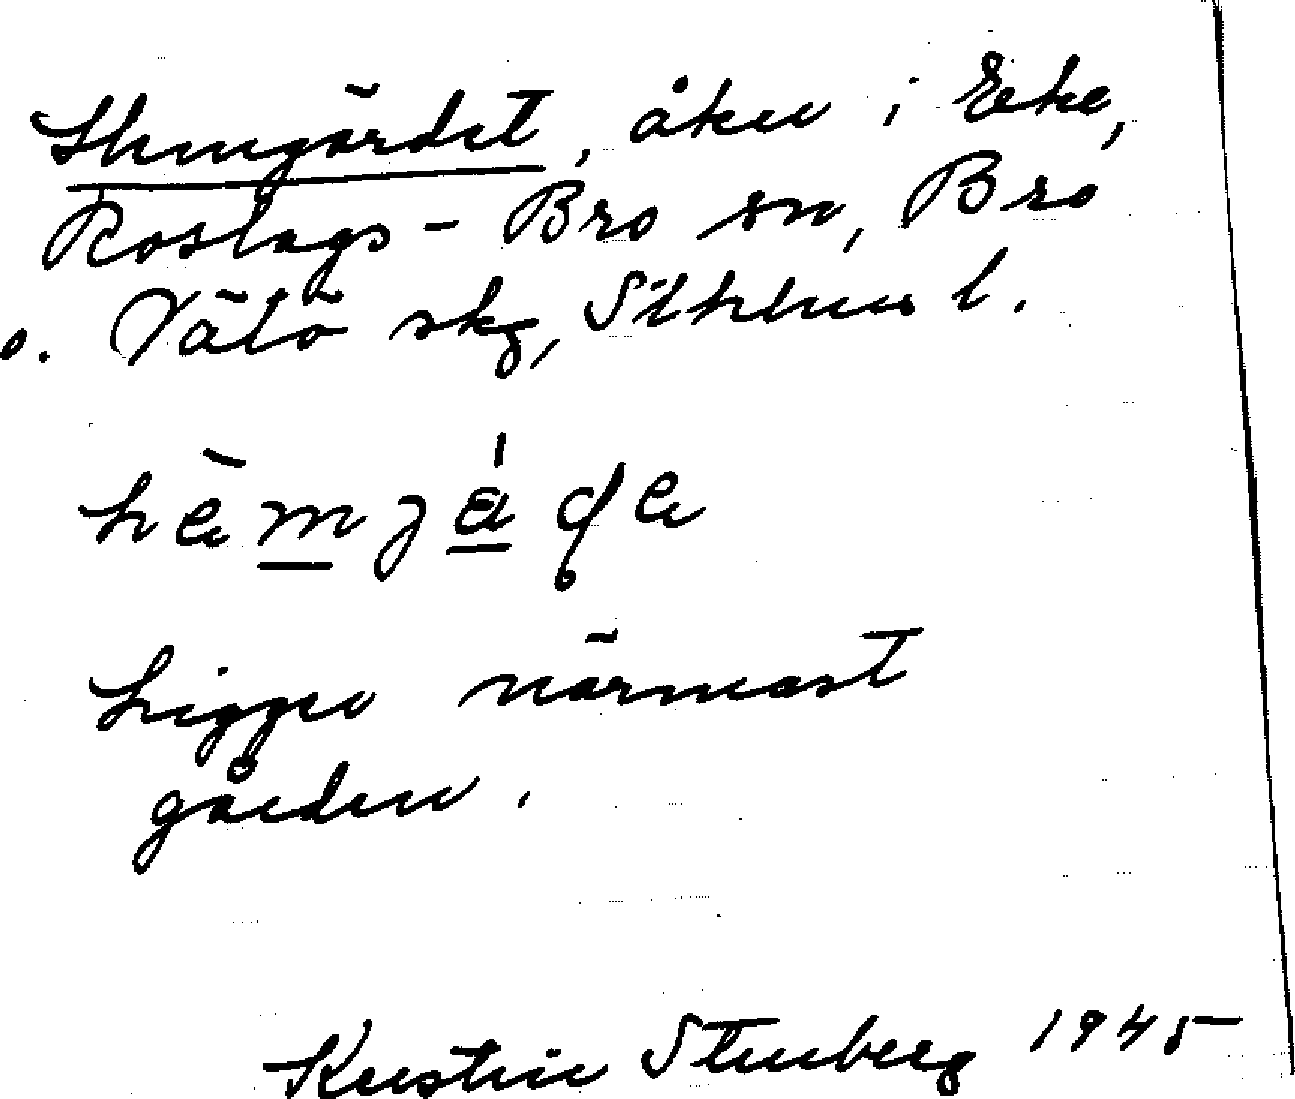 Hemgärdet, åker i Eke,
Roslags-Bro sn, Bro
o. Vätö skg, Sthlms l.
Ligger närmast
gården.
Kerstin Stenberg 1945